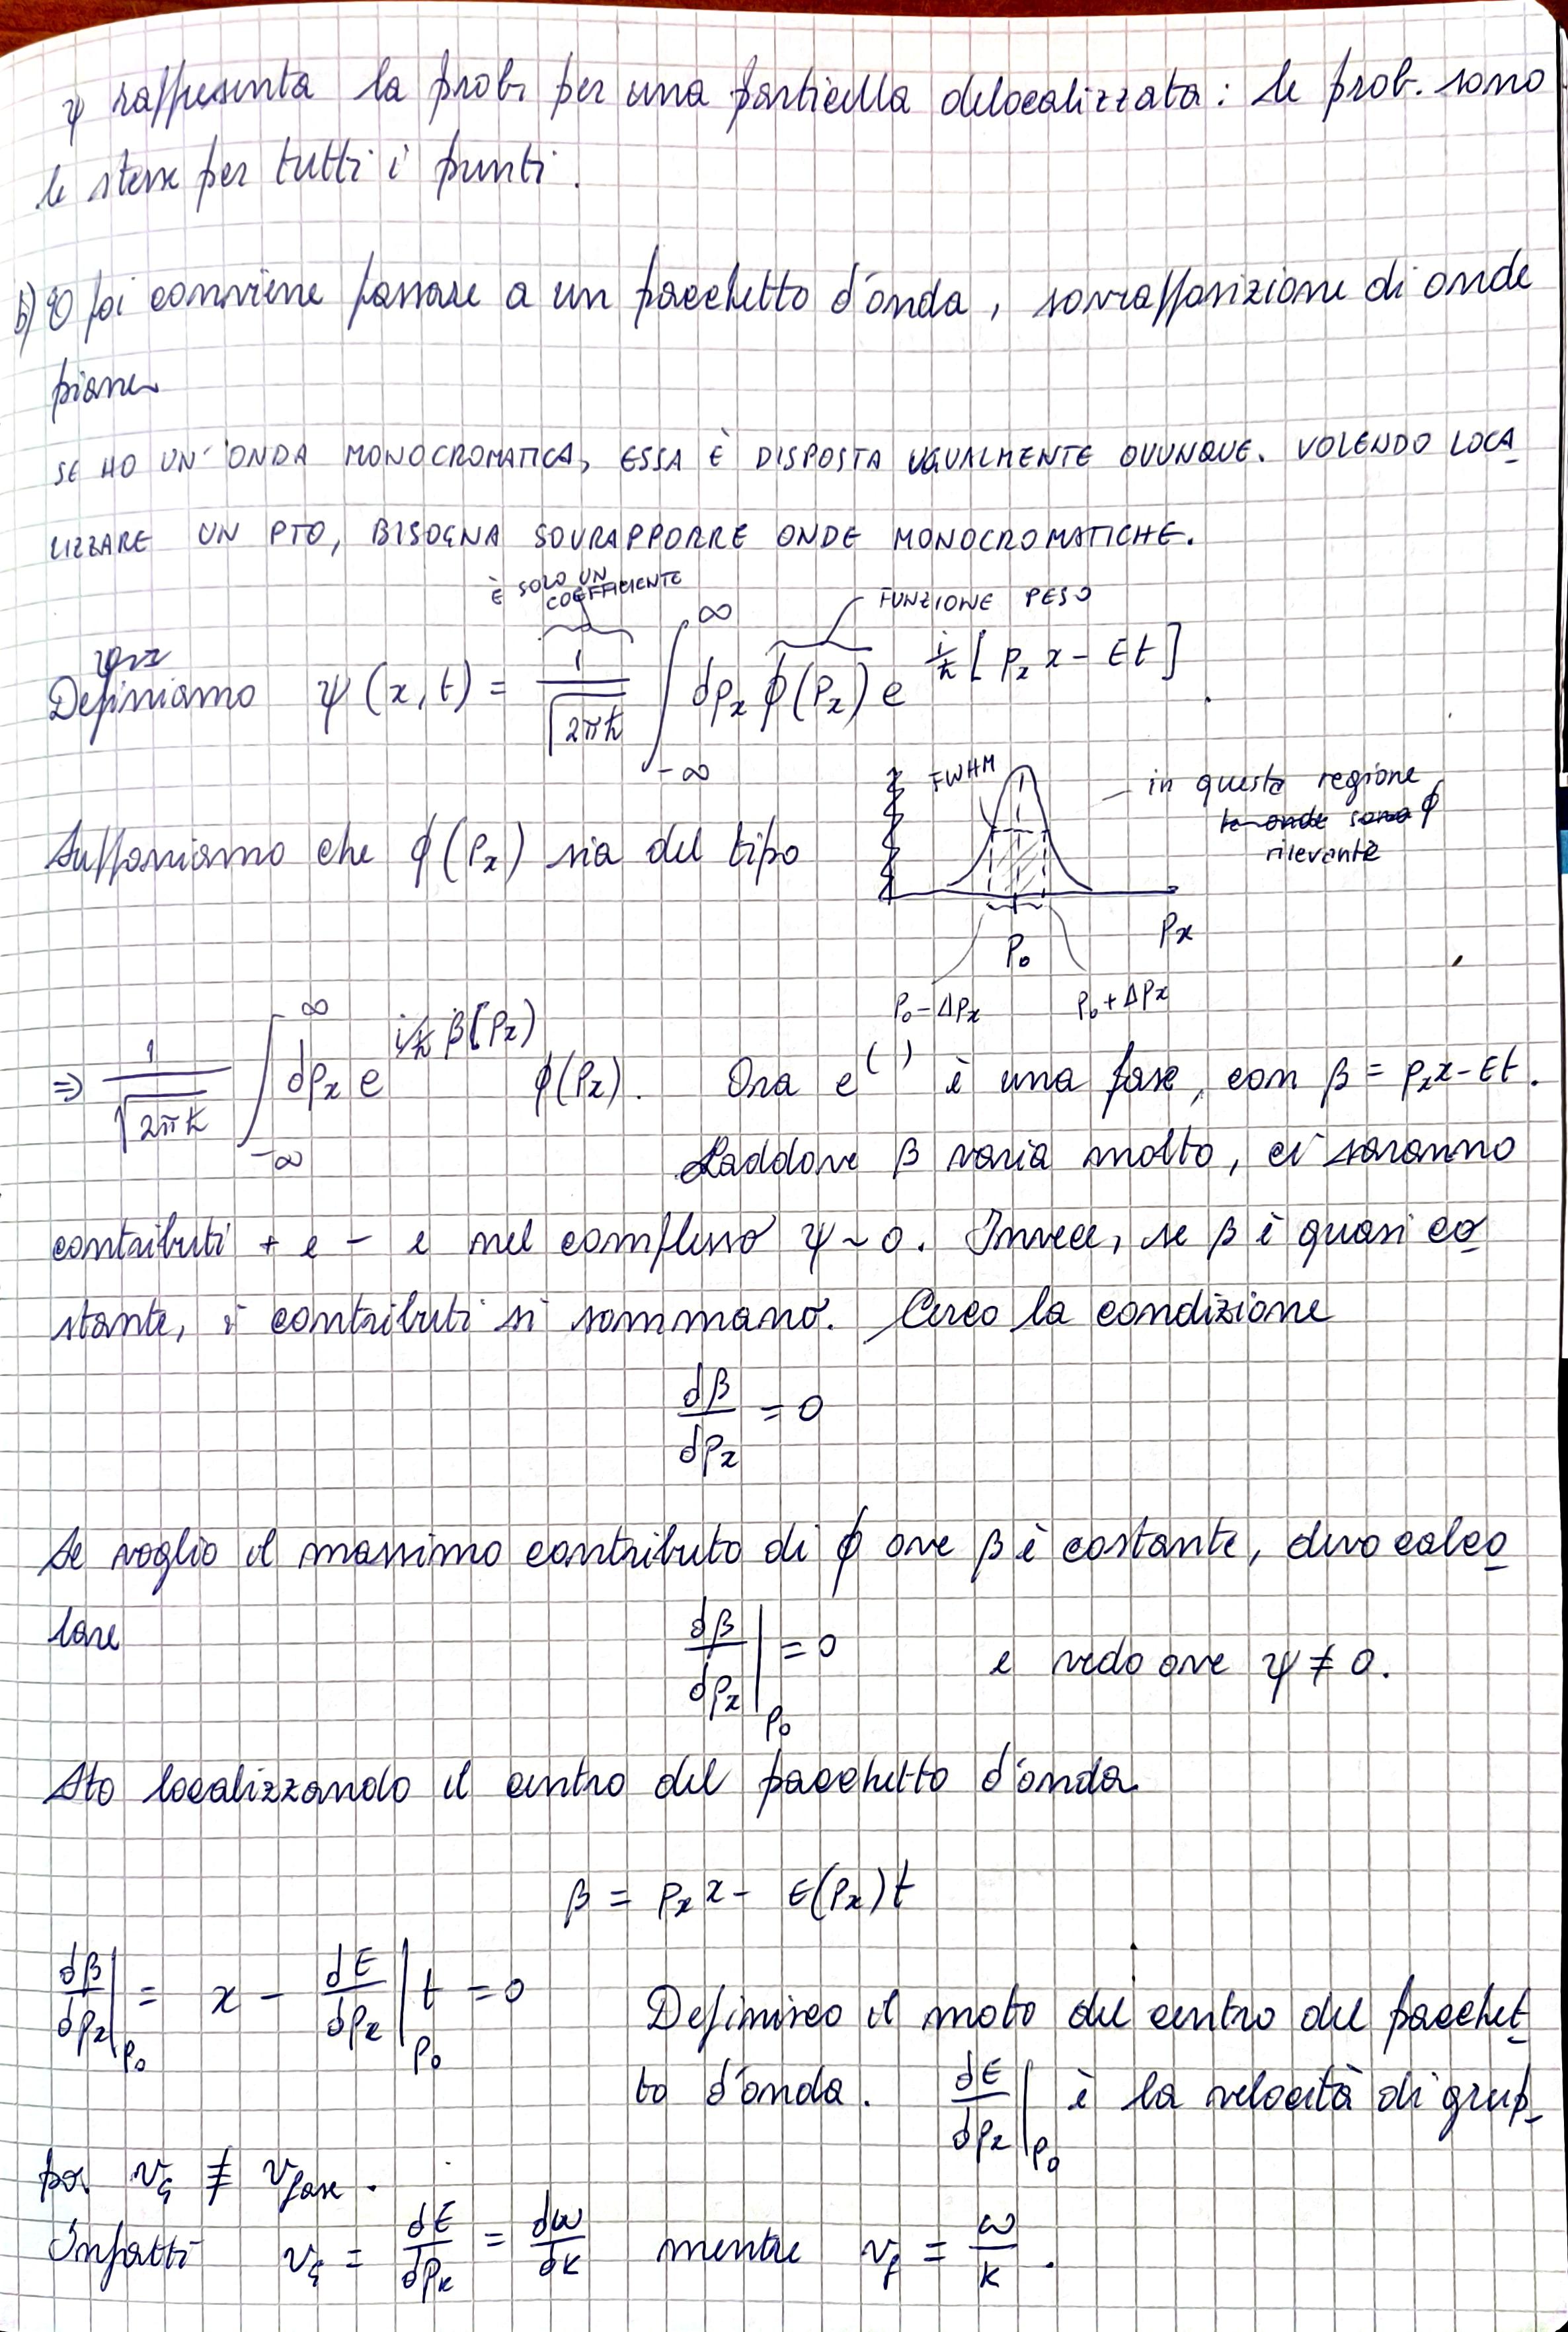 ψ rappresenta la prob. per una particella delocalizzata: le prob. sono
le stesse per tutti i punti.
b) E poi conviene passare a un pacchetto d'onda, sovrapposizione di onde
piane
SE HO UN' ONDA MONOCROMATICA, ESSA È DISPOSTA UGUALMENTE OVUNQUE. VOLENDO LOCA
LIZZARE UN PTO, BISOGNA SOVRAPPORRE ONDE MONOCROMATICHE.
È SOLO UN COEFFICIENTE
FUNZIONE PESO
Definiamo ψ(x,t) = 1/√(2πℏ) ∫_{-∞}^{∞} dp_x ϕ(p_x) e^{i/ℏ [p_x x - Et]}.
FWHM
in questa regione
le onde sono ϕ
rilevante
Supponiamo che ϕ(p_x) sia del tipo
p_0
p_x
p_0-Δp_x
p_0+Δp_x
⇒ 1/√(2πℏ) ∫_{-∞}^{∞} dp_x e^{i/ℏ β(p_x)} ϕ(p_x). Ora e^( ) è una fase, con β = p_x x-Et.
Laddove β varia molto, ci saranno
contributi + e - e nel complesso ψ~0. Invece, se β è quasi co
stante, i contributi si sommano. Cerco la condizione
dβ/dp_x = 0
Se voglio il massimo contributo di ϕ ove β è costante, devo calco
lare dβ/dp_x|_{p_0} = 0 e vedo ove ψ ≠ 0.
Sto localizzando il centro del pacchetto d'onda
β = p_x x - E(p_x)t
dβ/dp_x|_{p_0} = x - dE/dp_x|_{p_0} t = 0 Definisco il moto del centro del pacchet
to d'onda. dE/dp_x|_{p_0} è la velocità di grup
po. v_g ≠ v_fase.
Infatti v_g = dE/dp_x = dω/dk mentre v_f = ω/k.